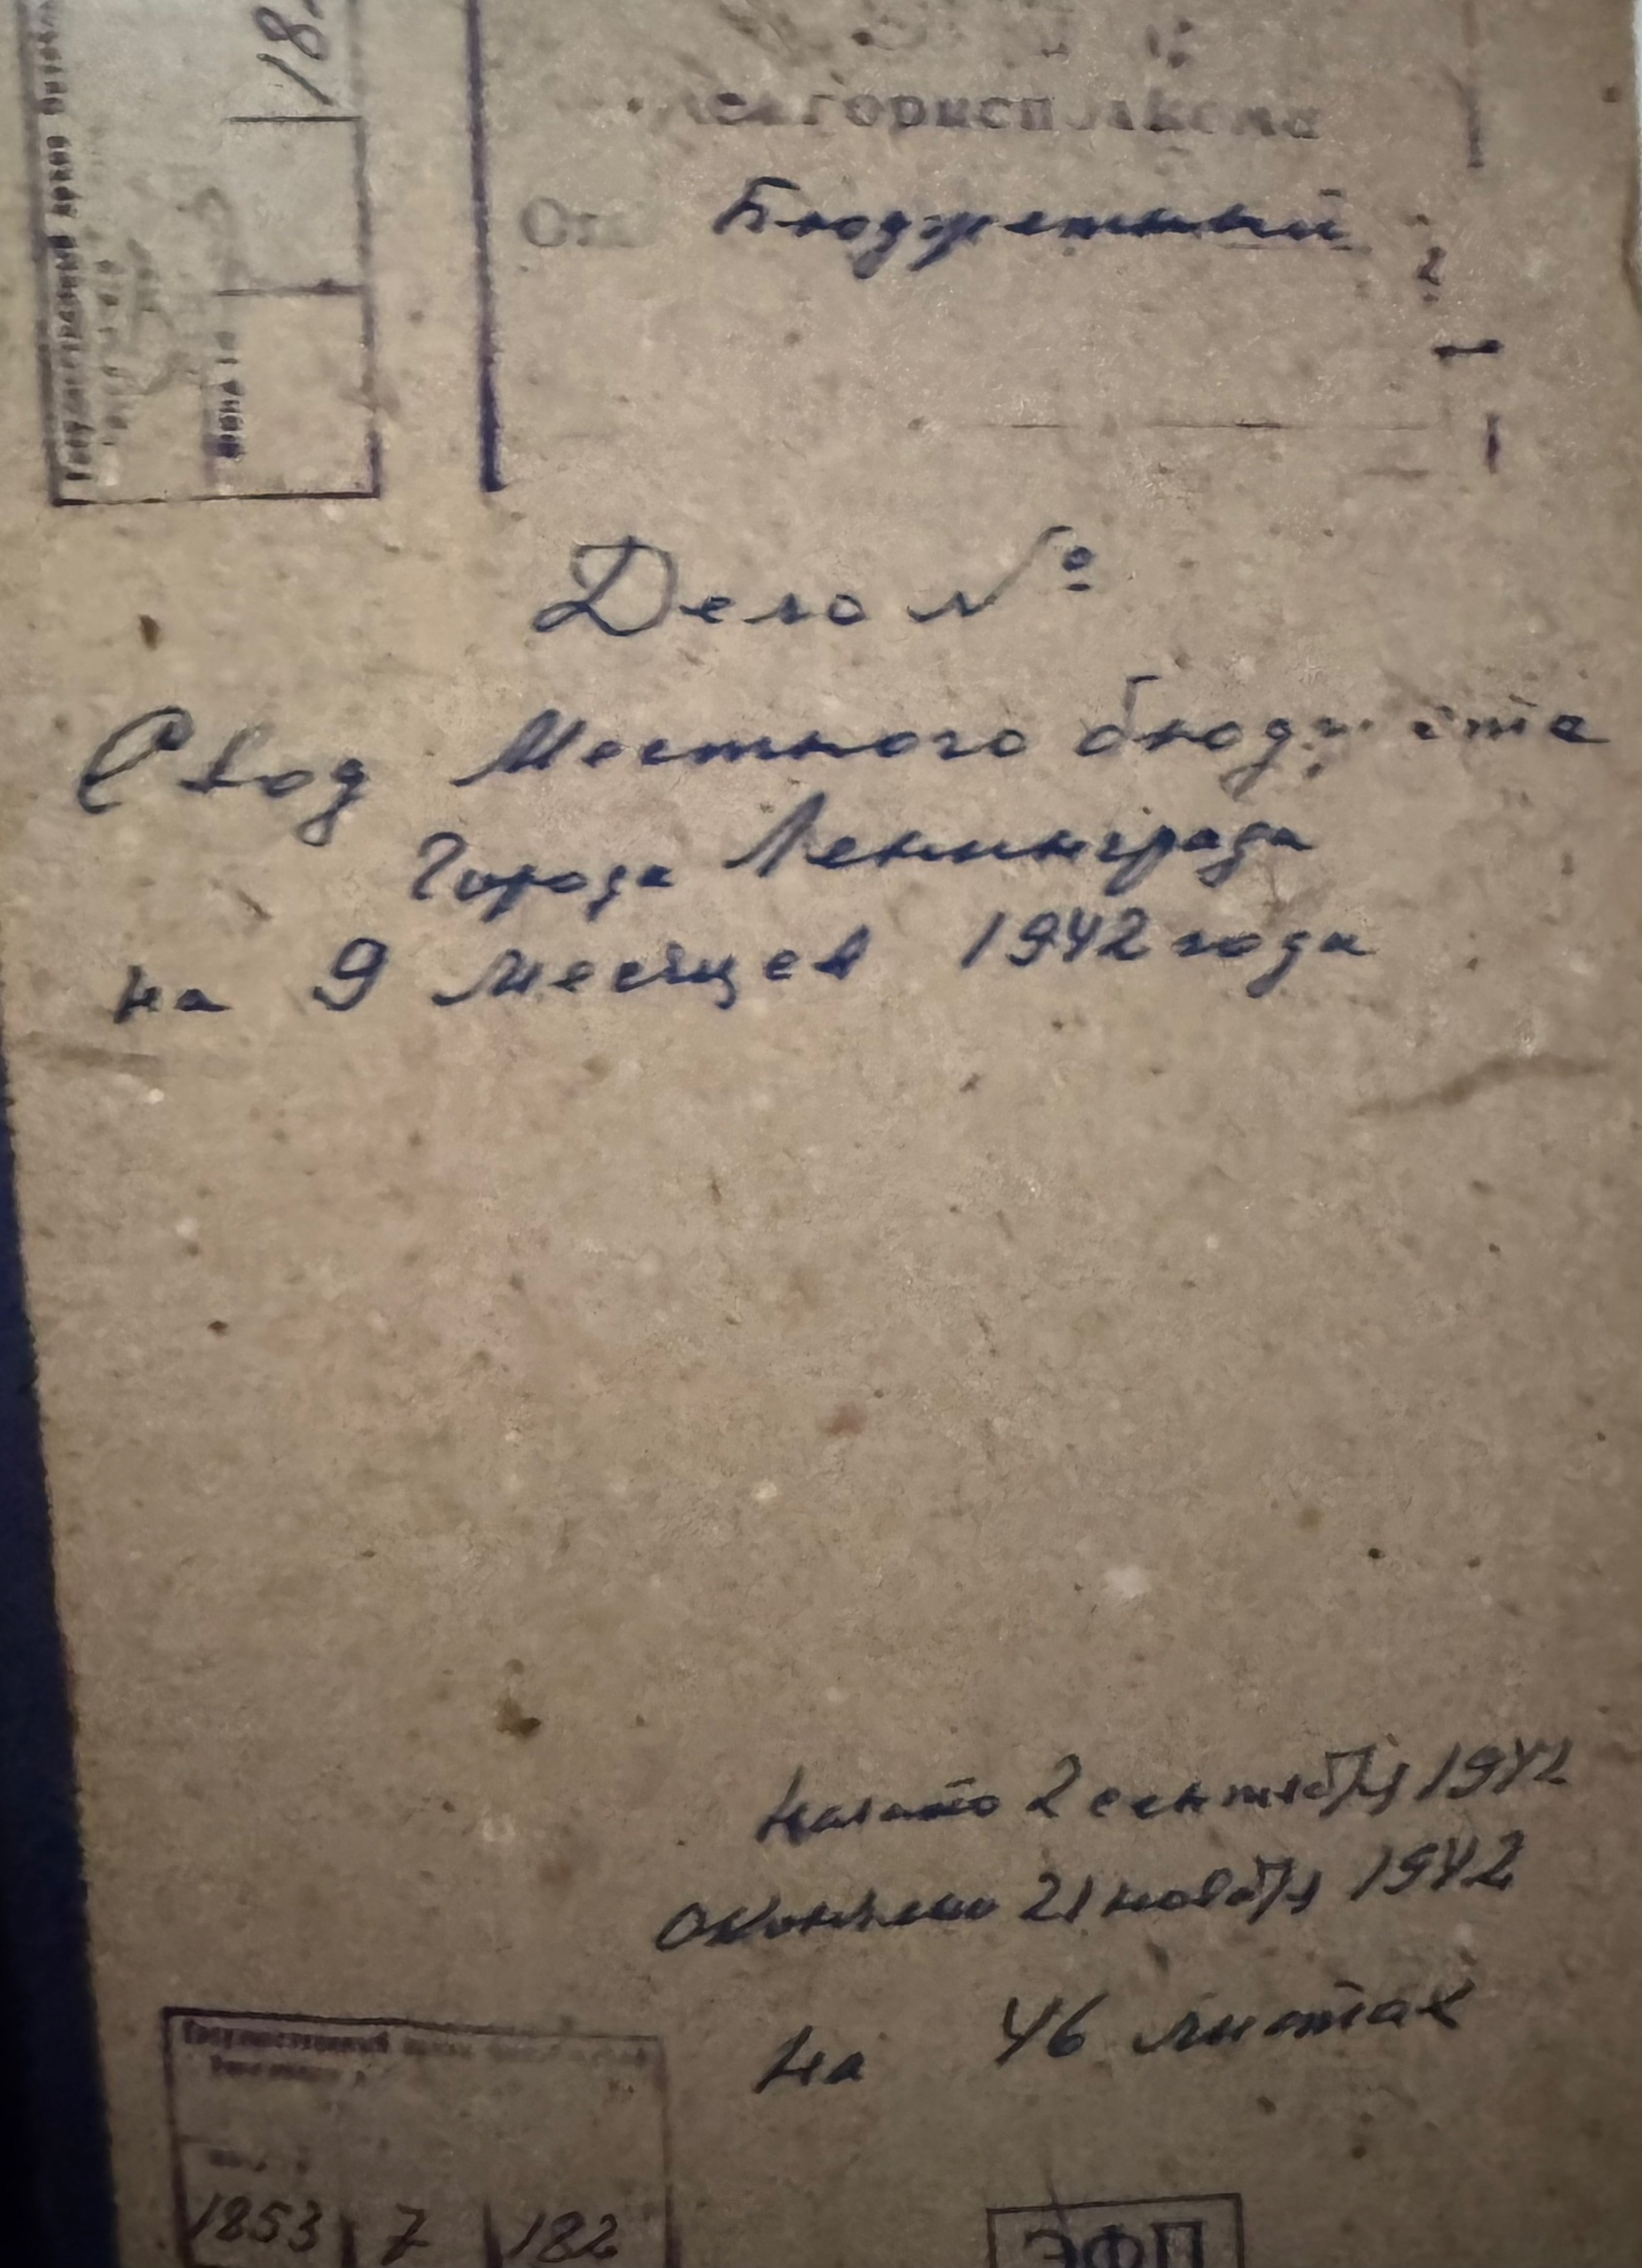 Ленгорисполкома
Бюджетный
Дело №
Свод Местного бюджета
Города Ленинграда
на 9 месяцев 1942 года
Начато 2 сентября 1942
Окончено 21 ноября 1942
на 46 листах
Государственный архив
1853 7 182
ЭФП
Государственный архив
ФОНД №
18